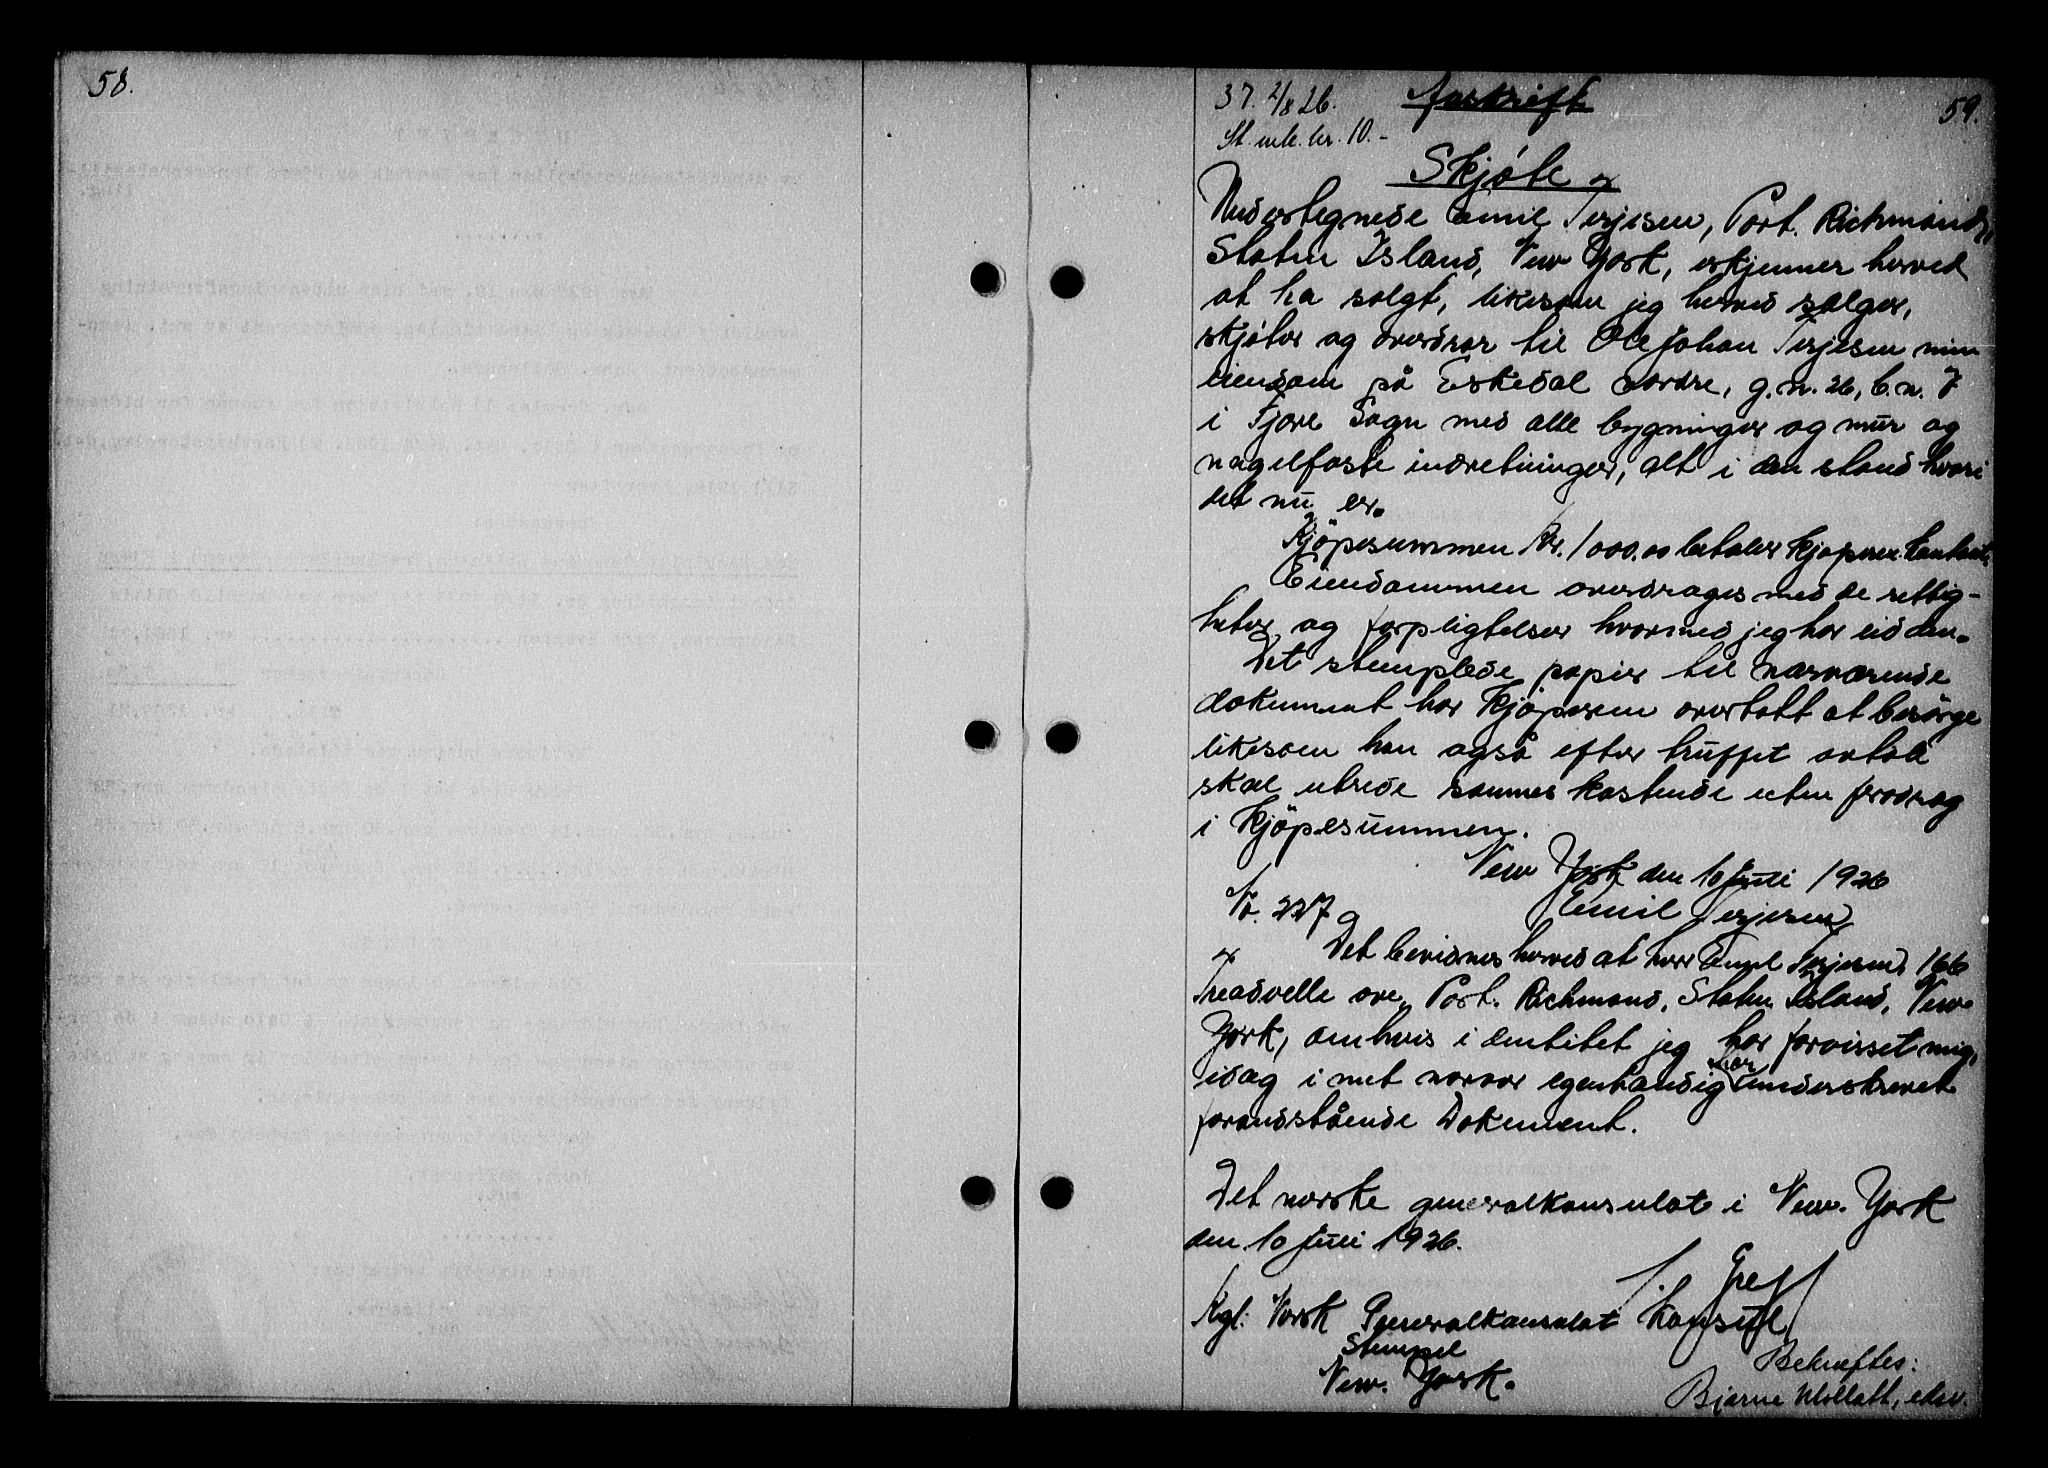 58.
59.
37. 2/8 26.
Avskrift
St. mk. kr. 10.-
Skjøte
Undertegnede Emil Terjesen, Port. Richmond,
Staten Island, New York, erkjenner herved
at ha solgt, likesom jeg herved sælger,
skjøter og overdrar til Ole Johan Terjesen min
eiendom på Eskedal nordre, g.n. 26, b.n. 7
i Fjære Sogn med alle bygninger og mur og
nagelfaste indretninger, alt i den stand hvori
det nu er.
Kjöpesummen Kr. 1000.00 betaler kjøperen kontant.
Eiendommen overdrages med de rettig-
heter og forpligtelser hvormed jeg har eid den.
Det stemplede papir til nærværende
dokument har kjöperen overtatt at besörge
likesom han også efter truffet avtale
skal utrede sammes kostende uten fradrag
i kjöpesummen.
New York den 10 Juli 1926
No. 227
Emil Terjesen
Det bevidnes herved at herr Emil Terjesen, 166
Treadvelle ave, Port. Richmond, Staten Island, New
York, om hvis identitet jeg har forvisset mig,
idag i mit nærvær egenhændig har underskrevet
foranstående Dokument.
Det norske generalkonsulat i New. York
den 10 Juli 1926.
Kgl. Norsk Generalkonsulat Konsul
Stempel
New. York.
Bekræftes:
Bjarne Mollatt, edsv.